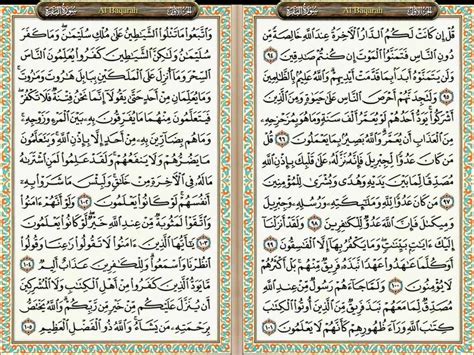 الجزء الأول Al Baqarah سورة البقرة
قُلْ إِن كَانَتْ لَكُمُ ٱلدَّارُ ٱلْأَخِرَةُ عِندَ ٱللَّهِ خَالِصَةً مِّن
دُونِ ٱلنَّاسِ فَتَمَنَّوُا۟ ٱلْمَوْتَ إِن كُنتُمْ صَٰدِقِينَ ٩٤
وَلَن يَتَمَنَّوْهُ أَبَدًۢا بِمَا قَدَّمَتْ أَيْدِيهِمْ وَٱللَّهُ عَلِيمٌۢ بِٱلظَّٰلِمِينَ
٩٥ وَلَتَجِدَنَّهُمْ أَحْرَصَ ٱلنَّاسِ عَلَىٰ حَيَوٰةٍ وَمِنَ ٱلَّذِينَ
أَشْرَكُوا۟ يَوَدُّ أَحَدُهُمْ لَوْ يُعَمَّرُ أَلْفَ سَنَةٍ وَمَا هُوَ بِمُزَحْزِحِهِۦ
مِنَ ٱلْعَذَابِ أَن يُعَمَّرَ وَٱللَّهُ بَصِيرٌۢ بِمَا يَعْمَلُونَ ٩٦ قُلْ
مَن كَانَ عَدُوًّا لِّجِبْرِيلَ فَإِنَّهُۥ نَزَّلَهُۥ عَلَىٰ قَلْبِكَ بِإِذْنِ ٱللَّهِ
مُصَدِّقًا لِّمَا بَيْنَ يَدَيْهِ وَهُدًى وَبُشْرَىٰ لِلْمُؤْمِنِينَ
٩٧ مَن كَانَ عَدُوًّا لِّلَّهِ وَمَلَٰٓئِكَتِهِۦ وَرُسُلِهِۦ وَجِبْرِيلَ
وَمِيكَىٰلَ فَإِنَّ ٱللَّهَ عَدُوٌّ لِّلْكَٰفِرِينَ ٩٨ وَلَقَدْ أَنزَلْنَآ
إِلَيْكَ ءَايَٰتٍۭ بَيِّنَٰتٍ وَمَا يَكْفُرُ بِهَآ إِلَّا ٱلْفَٰسِقُونَ ٩٩
أَوَكُلَّمَا عَٰهَدُوا۟ عَهْدًا نَّبَذَهُۥ فَرِيقٌ مِّنْهُم بَلْ أَكْثَرُهُمْ
لَا يُؤْمِنُونَ ١٠٠ وَلَمَّا جَآءَهُمْ رَسُولٌ مِّنْ عِندِ ٱللَّهِ
مُصَدِّقٌ لِّمَا مَعَهُمْ نَبَذَ فَرِيقٌ مِّنَ ٱلَّذِينَ أُوتُوا۟ ٱلْكِتَٰبَ
كِتَٰبَ ٱللَّهِ وَرَآءَ ظُهُورِهِمْ كَأَنَّهُمْ لَا يَعْلَمُونَ ١٠١
الجزء الأول Al Baqarah سورة البقرة
وَٱتَّبَعُوا۟ مَا تَتْلُوا۟ ٱلشَّيَٰطِينُ عَلَىٰ مُلْكِ سُلَيْمَٰنَ وَمَا كَفَرَ
سُلَيْمَٰنُ وَلَٰكِنَّ ٱلشَّيَٰطِينَ كَفَرُوا۟ يُعَلِّمُونَ ٱلنَّاسَ
ٱلسِّحْرَ وَمَآ أُنزِلَ عَلَى ٱلْمَلَكَيْنِ بِبَابِلَ هَٰرُوتَ وَمَٰرُوتَ
وَمَا يُعَلِّمَانِ مِنْ أَحَدٍ حَتَّىٰ يَقُولَآ إِنَّمَا نَحْنُ فِتْنَةٌ فَلَا تَكْفُرْ
فَيَتَعَلَّمُونَ مِنْهُمَا مَا يُفَرِّقُونَ بِهِۦ بَيْنَ ٱلْمَرْءِ وَزَوْجِهِۦ
وَمَا هُم بِضَآرِّينَ بِهِۦ مِنْ أَحَدٍ إِلَّا بِإِذْنِ ٱللَّهِ وَيَتَعَلَّمُونَ
مَا يَضُرُّهُمْ وَلَا يَنفَعُهُمْ وَلَقَدْ عَلِمُوا۟ لَمَنِ ٱشْتَرَىٰهُ
مَا لَهُۥ فِى ٱلْأَخِرَةِ مِنْ خَلَٰقٍ وَلَبِئْسَ مَا شَرَوْا۟ بِهِۦٓ
أَنفُسَهُمْ لَوْ كَانُوا۟ يَعْلَمُونَ ١٠٢ وَلَوْ أَنَّهُمْ ءَامَنُوا۟
وَٱتَّقَوْا۟ لَمَثُوبَةٌ مِّنْ عِندِ ٱللَّهِ خَيْرٌ لَّوْ كَانُوا۟ يَعْلَمُونَ
١٠٣ يَٰٓأَيُّهَا ٱلَّذِينَ ءَامَنُوا۟ لَا تَقُولُوا۟ رَٰعِنَا وَقُولُوا۟
ٱنظُرْنَا وَٱسْمَعُوا۟ وَلِلْكَٰفِرِينَ عَذَابٌ أَلِيمٌ ١٠٤
مَّا يَوَدُّ ٱلَّذِينَ كَفَرُوا۟ مِنْ أَهْلِ ٱلْكِتَٰبِ وَلَا ٱلْمُشْرِكِينَ
أَن يُنَزَّلَ عَلَيْكُم مِّنْ خَيْرٍ مِّن رَّبِّكُمْ وَٱللَّهُ يَخْتَصُّ
بِرَحْمَتِهِۦ مَن يَشَآءُ وَٱللَّهُ ذُو ٱلْفَضْلِ ٱلْعَظِيمِ ١٠٥